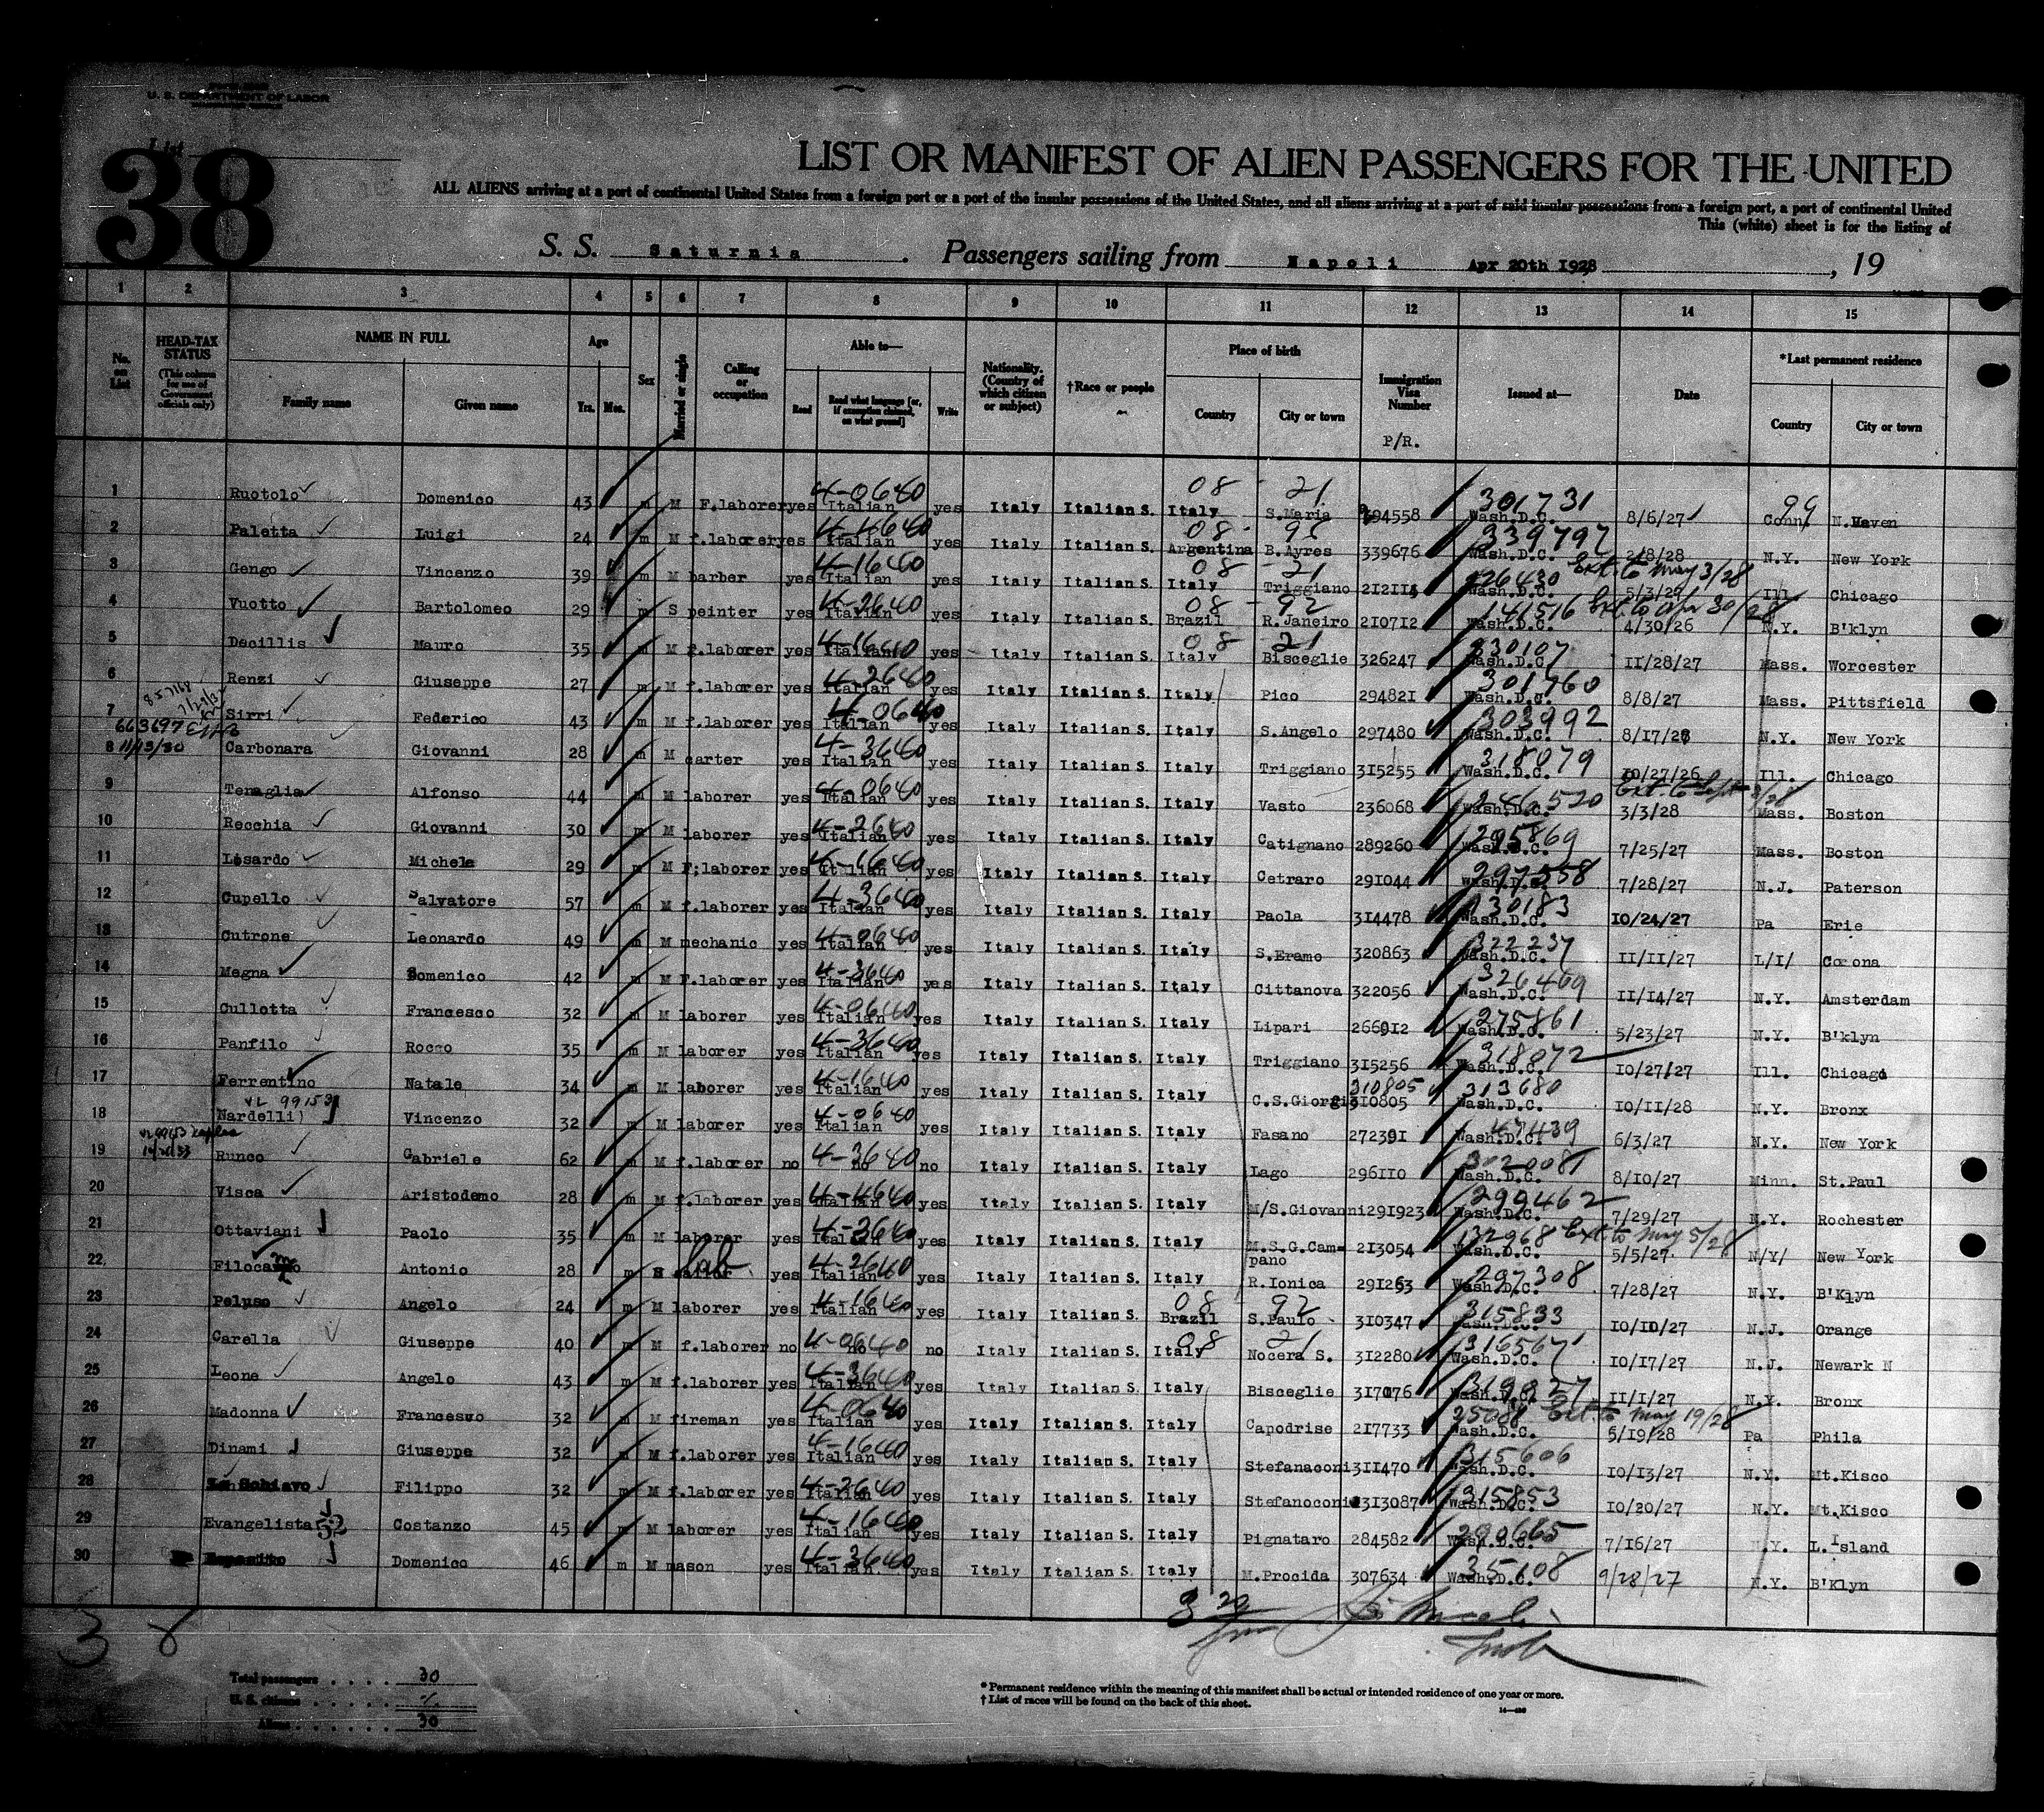 U. S. DEPARTMENT OF LABOR
List
38
LIST OR MANIFEST OF ALIEN PASSENGERS FOR THE UNITED
ALL ALIENS arriving at a port of continental United States from a foreign port or a port of the insular possessions of the United States, and all aliens arriving at a port of said insular possessions from a foreign port, a port of continental United
This (white) sheet is for the listing of
S. S. Saturnia . Passengers sailing from Napoli Apr 20th 1928 , 19
1 2 3 4 5 6 7 8 9 10 11 12 13 14 15
No. on List HEAD-TAX STATUS (This column for use of Government officials only) NAME IN FULL Family name Given name Age Yrs. Mos. Sex Married or single Calling or occupation Able to— Read Read what language [or, if exemption claimed, on what ground] Write Nationality. (Country of which citizen or subject) †Race or people Place of birth Country City or town Immigration Visa Number P/R. Issued at— Date *Last permanent residence Country City or town
1 Ruotolo Domenico 43 m M F.laborer yes 4-0640 Italian yes Italy Italian S. 08 Italy 21 S.Maria 94558 301731 Wash.D.C. 8/6/27 99 Conn N.Haven
2 Paletta Luigi 24 m M f.laborer yes 4-4640 Italian yes Italy Italian S. 08 Argentina B.Ayres 339676 339797 Wash.D.C. 2/8/28 N.Y. New York
3 Gengo Vincenzo 39 m M barber yes 4-1640 Italian yes Italy Italian S. 08 Italy 21 Triggiano 212114 226430 Ext. to May 3/28 Wash.D.C. 5/3/27 Ill. Chicago
4 Vuotto Bartolomeo 29 m S peinter yes 4-2640 Italian yes Italy Italian S. 08 Brazil 92 R.Janeiro 210712 141516 Ext to Apr 30/28 Wash.D.C. 4/30/26 N.Y. B'klyn
5 Decillis Mauro 35 m M f.laborer yes 4-1640 Italian yes Italy Italian S. 08 Italy 21 Bisceglie 326247 330107 Wash.D.C. 11/28/27 Mass. Worcester
6 Renzi Giuseppe 27 m M f.laborer yes 4-2640 Italian yes Italy Italian S. Italy Pico 294821 301760 Wash.D.C. 8/8/27 Mass. Pittsfield
7 Sirri Federico 43 m M f.laborer yes 4-0640 Italian yes Italy Italian S. Italy S.Angelo 297480 303992 Wash.D.C. 8/17/28 N.Y. New York
663697
8 11/13/30 Carbonara Giovanni 28 m M carter yes 4-3640 Italian yes Italy Italian S. Italy Triggiano 315255 318079 Wash.D.C. 10/27/26 Ill. Chicago
9 Tenaglia Alfonso 44 m M laborer yes 4-0640 Italian yes Italy Italian S. Italy Vasto 236068 246520 Ext. to Sept 3/28 Wash.D.C. 3/3/28 Mass. Boston
10 Recchia Giovanni 30 m M laborer yes 4-2640 Italian yes Italy Italian S. Italy Catignano 289260 295869 Wash.D.C. 7/25/27 Mass. Boston
11 Losardo Michele 29 m M F;laborer yes 4-1640 Italian yes Italy Italian S. Italy Cetraro 291044 297558 Wash.D.C. 7/28/27 N.J. Paterson
12 Cupello Salvatore 57 m M f.laborer yes 4-3640 Italian yes Italy Italian S. Italy Paola 314478 30183 Wash.D.C. 10/24/27 Pa Erie
13 Cutrone Leonardo 49 m M mechanic yes 4-0640 Italian yes Italy Italian S. Italy S.Eramo 320863 322237 Wash.D.C. 11/11/27 L/I/ Corona
14 Megna Domenico 42 m M F.laborer yes 4-3640 Italian yes Italy Italian S. Italy Cittanova 322056 326469 Wash.D.C. 11/14/27 N.Y. Amsterdam
15 Cullotta Francesco 32 m M laborer yes 4-0640 Italian yes Italy Italian S. Italy Lipari 266912 275861 Wash.D.C. 5/23/27 N.Y. B'klyn
16 Panfilo Rocco 35 m M laborer yes 4-3640 Italian yes Italy Italian S. Italy Triggiano 315256 318072 Wash.D.C. 10/27/27 Ill. Chicago
17 Ferrentino Natale 34 m M laborer yes 4-1640 Italian yes Italy Italian S. Italy C.S.Giorgi 310805 310805 313680 Wash.D.C. 10/11/28 N.Y. Bronx
VL 99153
18 Nardelli) Vincenzo 32 m M laborer yes 4-0640 Italian yes Italy Italian S. Italy Fasano 272391 47439 Wash.D.C. 6/3/27 N.Y. New York
19 Runco Gabriele 62 m M f.laborer no 4-3640 no no Italy Italian S. Italy Lago 296110 302008 Wash.D.C. 8/10/27 Minn. St.Paul
20 Visca Aristodemo 28 m M f.laborer yes 4-4640 Italian yes Italy Italian S. Italy M/S.Giovanni 291923 299462 Wash.D.C. 7/29/27 N.Y. Rochester
21 Ottaviani Paolo 35 m M laborer yes 4-2640 Italian yes Italy Italian S. Italy M.S.G.Cam-pano 213054 132968 Ext. to May 5/28 Wash.D.C. 5/5/27 N/Y/ New York
22 Filocamo Antonio 28 m S lab yes 4-2640 Italian yes Italy Italian S. Italy R.Ionica 291263 297308 Wash.D.C. 7/28/27 N.Y. B'Klyn
23 Peluso Angelo 24 m M laborer yes 4-1640 Italian yes Italy Italian S. 08 Brazil 92 S.Paulo 310347 315833 Wash.D.C. 10/10/27 N.J. Orange
24 Carella Giuseppe 40 m M f.laborer no 4-0640 no no Italy Italian S. 08 Italy 21 Nocera S. 312280 316567 Wash.D.C. 10/17/27 N.J. Newark N
25 Leone Angelo 43 m M f.laborer yes 4-3640 Italian yes Italy Italian S. Italy Bisceglie 317076 319827 Wash.D.C. 11/1/27 N.Y. Bronx
26 Madonna Francesco 32 m M fireman yes 4-0640 Italian yes Italy Italian S. Italy Capodrise 217733 25088 Ext. to May 19/28 Wash.D.C. 5/19/28 Pa Phila
27 Dinami Giuseppe 32 m M f.laborer yes 4-1640 Italian yes Italy Italian S. Italy Stefanaconi 311470 315606 Wash.D.C. 10/13/27 N.Y. Mt.Kisco
28 Lo Schiavo Filippo 32 m M f.laborer yes 4-2640 Italian yes Italy Italian S. Italy Stefanoconi 313087 315853 Wash.D.C. 10/20/27 N.Y. Mt.Kisco
29 Evangelista Costanzo 45 m M laborer yes 4-1640 Italian yes Italy Italian S. Italy Pignataro 284582 290665 Wash.D.C. 7/16/27 N.Y. L.Island
30 Esposito Domenico 46 m M mason yes 4-3640 Italian yes Italy Italian S. Italy M.Procida 307634 35108 Wash.D.C. 9/28/27 N.Y. B'Klyn
3 8
Total passengers . . . . 30
U. S. citizens . . . . .
Aliens . . . . . . 30
* Permanent residence within the meaning of this manifest shall be actual or intended residence of one year or more.
† List of races will be found on the back of this sheet.